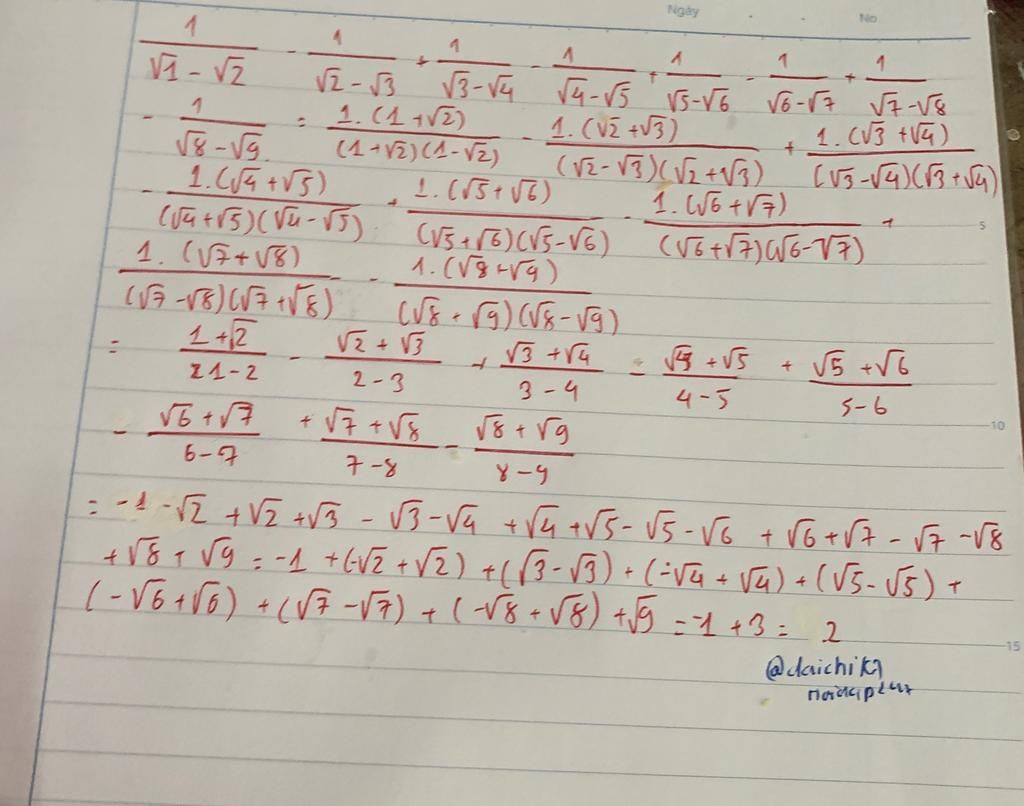 Ngày . . No
1/(√1 - √2) - 1/(√2 - √3) + 1/(√3 - √4) - 1/(√4 - √5) + 1/(√5 - √6) - 1/(√6 - √7) + 1/(√7 - √8)
- 1/(√8 - √9) = 1.(1 + √2)/((1 + √2)(1 - √2)) - 1.(√2 + √3)/((√2 - √3)(√2 + √3)) + 1.(√3 + √4)/((√3 - √4)(√3 + √4))
- 1.(√4 + √5)/((√4 + √5)(√4 - √5)) + 1.(√5 + √6)/((√5 + √6)(√5 - √6)) - 1.(√6 + √7)/((√6 + √7)(√6 - √7)) +
5
1.(√7 + √8)/((√7 - √8)(√7 + √8)) - 1.(√8 + √9)/((√8 + √9)(√8 - √9))
= (1 + √2)/(1 - 2) - (√2 + √3)/(2 - 3) + (√3 + √4)/(3 - 4) - (√4 + √5)/(4 - 5) + (√5 + √6)/(5 - 6)
10
- (√6 + √7)/(6 - 7) + (√7 + √8)/(7 - 8) - (√8 + √9)/(8 - 9)
= -1 - √2 + √2 + √3 - √3 - √4 + √4 + √5 - √5 - √6 + √6 + √7 - √7 - √8
+ √8 + √9 = -1 + (-√2 + √2) + (√3 - √3) + (-√4 + √4) + (√5 - √5) +
(-√6 + √6) + (√7 - √7) + (-√8 + √8) + √9 = -1 + 3 = 2
15